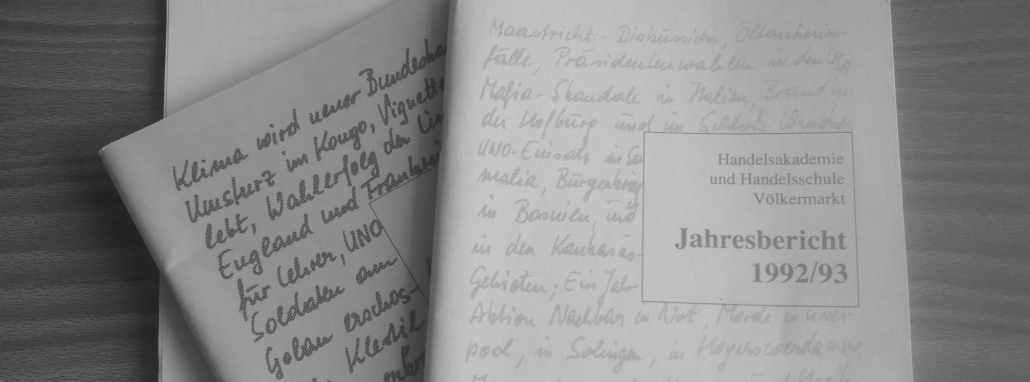 Klima wird neuer Bundeska
Umsturz im Kongo, Vignette
lebt, Wahlerfolg der Lin
England und Frankrei
für Lehrer, UNO
Soldaten am
Golan erschos-
Klestil
Maastricht-Diskussion, Öltankerun-
fälle, Präsidentenwahlen in den USA
Mafia-Skandale in Italien, Brand in
der Hofburg und im Schloß Windsor
UNO-Einsatz in So
malia, Bürgerkrieg
in Bosnien und
in den Kaukasus-
Gebieten; Ein Jahr
Aktion Nachbar in Not, Morde in
pool, in Solingen, in Hoyerswerda
Handelsakademie
und Handelsschule
Völkermarkt
Jahresbericht
1992/93